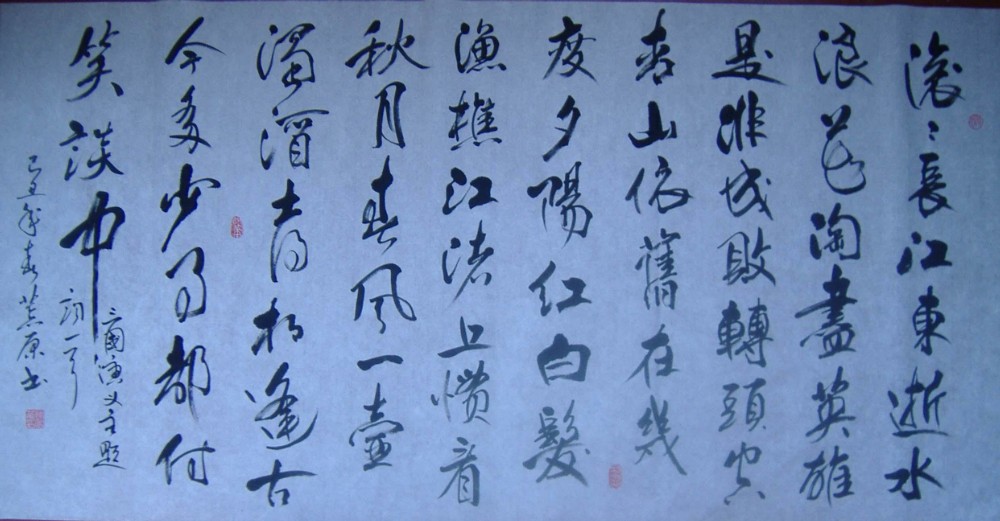 滚々長江東逝水
浪花淘盡英雄
是非成敗轉頭空
青山依舊在幾
度夕陽红白髮
漁樵江渚上慣看
秋月春風一壺
濁酒喜得相逢古
今多少事都付
笑談中
三國演义主题
词一首
己丑年春荒原书